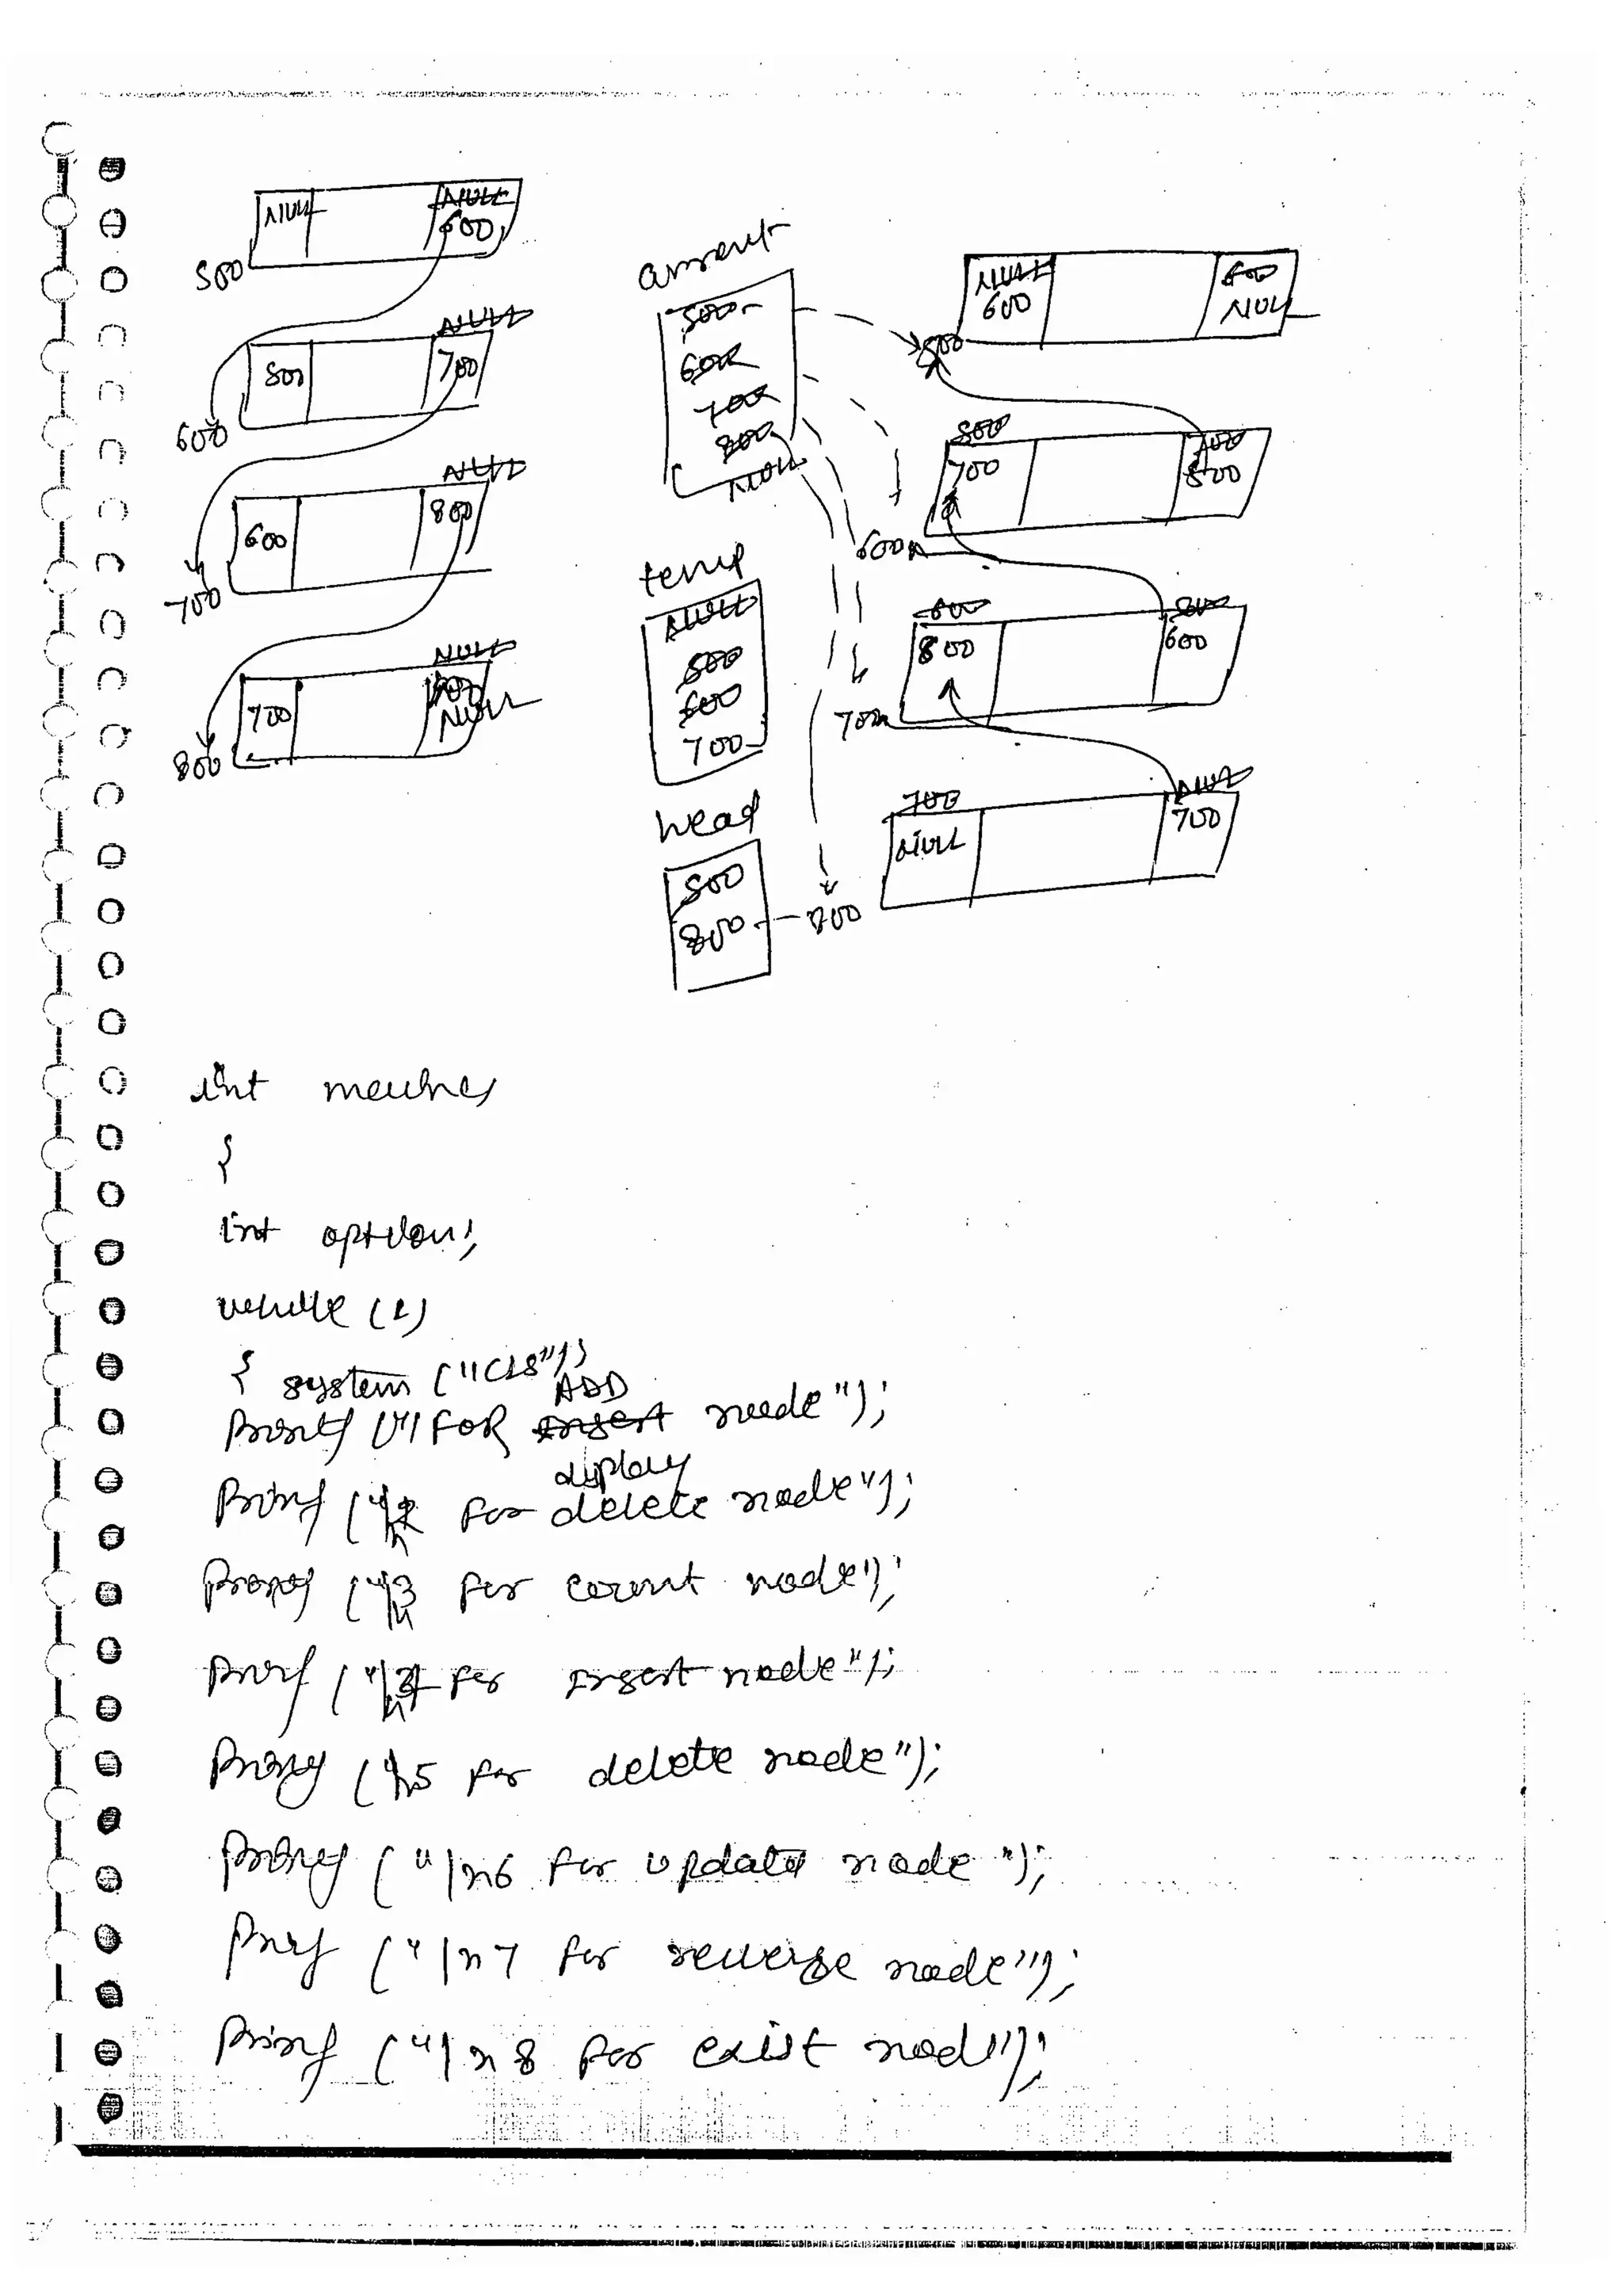 NULL NULL
600
500
NULL
500 700
600
NULL
600 800
700
NULL
700 NULL
800
current
500
600
700
800
NULL
temp
NULL
500
600
700
head
500
800
NULL 600
600 NULL
500
500 700
700 500
600
600 800
800 600
700
700 NULL
NULL 700
800
int main()
{
int option;
while (1)
{ system ("cls");
ADD
printf ("1 FOR insert node");
display
printf ("\n2 for delete node");
printf ("\n3 for count node");
printf ("\n4 for Insert node");
printf ("\n5 for delete node");
printf ("\n6 for update node");
printf ("\n7 for reverse node");
printf ("\n8 for exist nod");